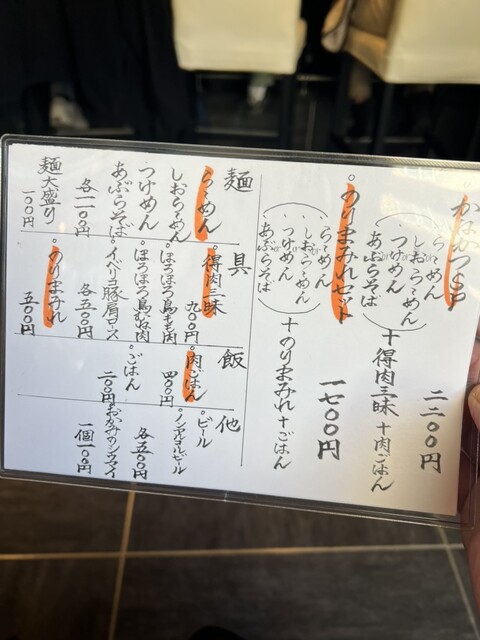 かなかつSP
らぁめん
しおらぁめん
つけめん
あぶらそば
+得肉三昧+肉ごはん
二二〇〇円
のりまみれセット
らぁめん
しおらぁめん
つけめん
あぶらそば
+のりまみれ+ごはん
一七〇〇円
麺
らぁめん
しおらぁめん
つけめん
あぶらそば
各一一〇〇円
麺大盛り
一〇〇円
具
得肉三昧
九〇〇円
ほろほろ鳥もも肉
ほろほろ鳥むね肉
イベリコ豚肩ロース
各五〇〇円
のりまみれ
五〇〇円
飯
肉ごはん
四〇〇円
ごはん
二〇〇円
他
ビール
ノンアルコールビール
各五〇〇円
おかみのキンツマイ
一個一〇〇円